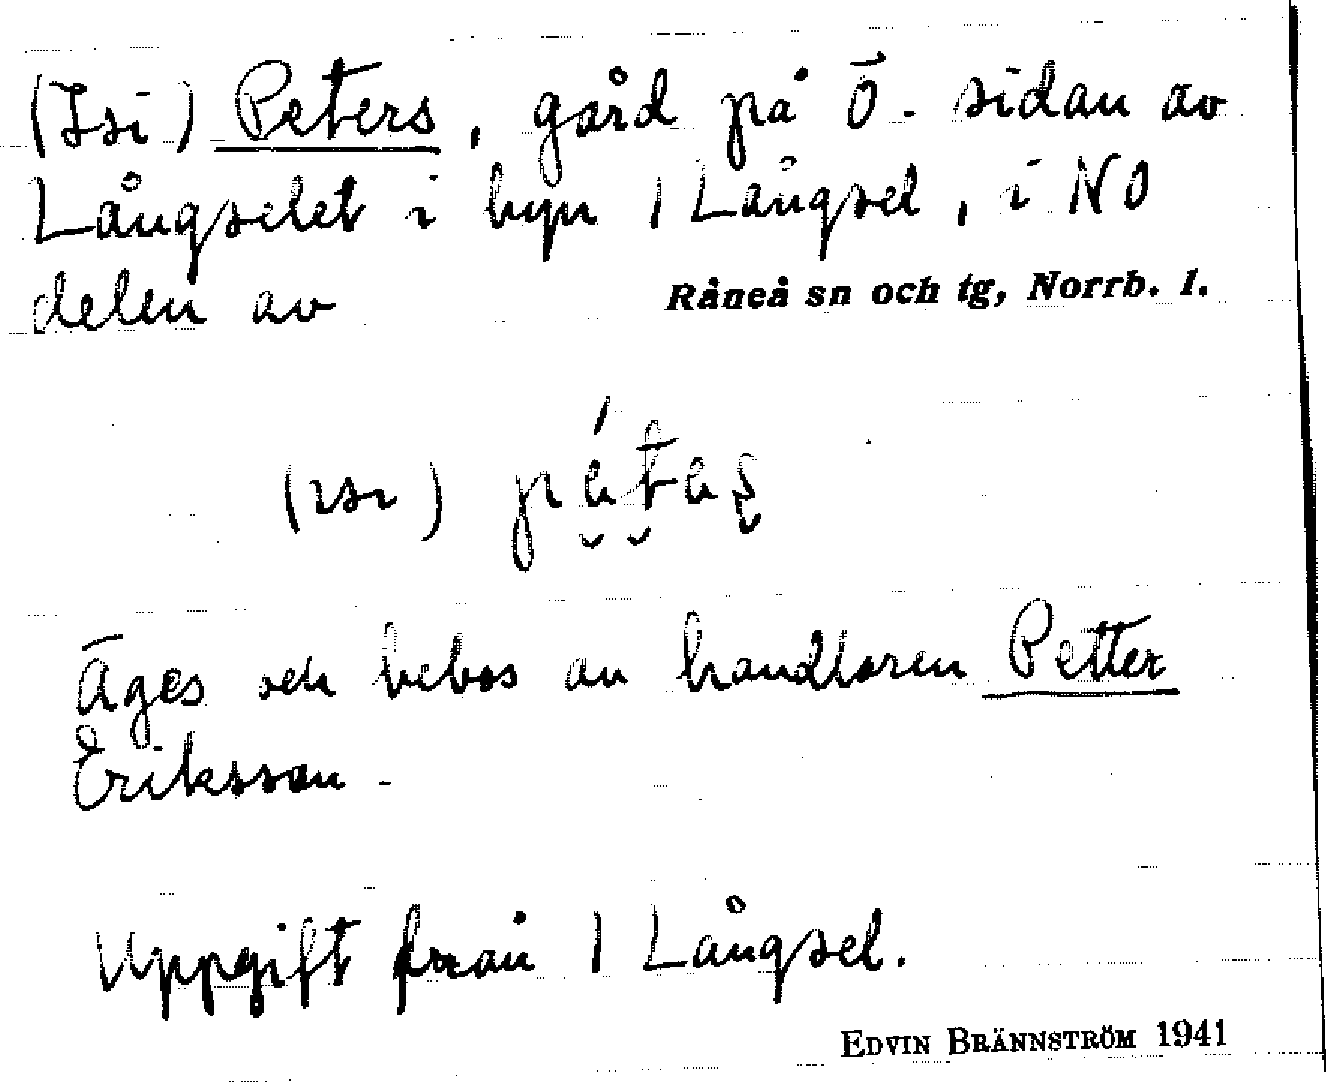 (Isi) Peters, gård på Ö. sidan av
Långselet i byn 1 Långsel, i NO
delen av Råneå sn och tg, Norrb. l.
(ısı)
Äges och bebos av handlaren Petter
Eriksson.
Uppgift från 1 Långsel.
EDVIN BRÄNNSTRÖM 1941